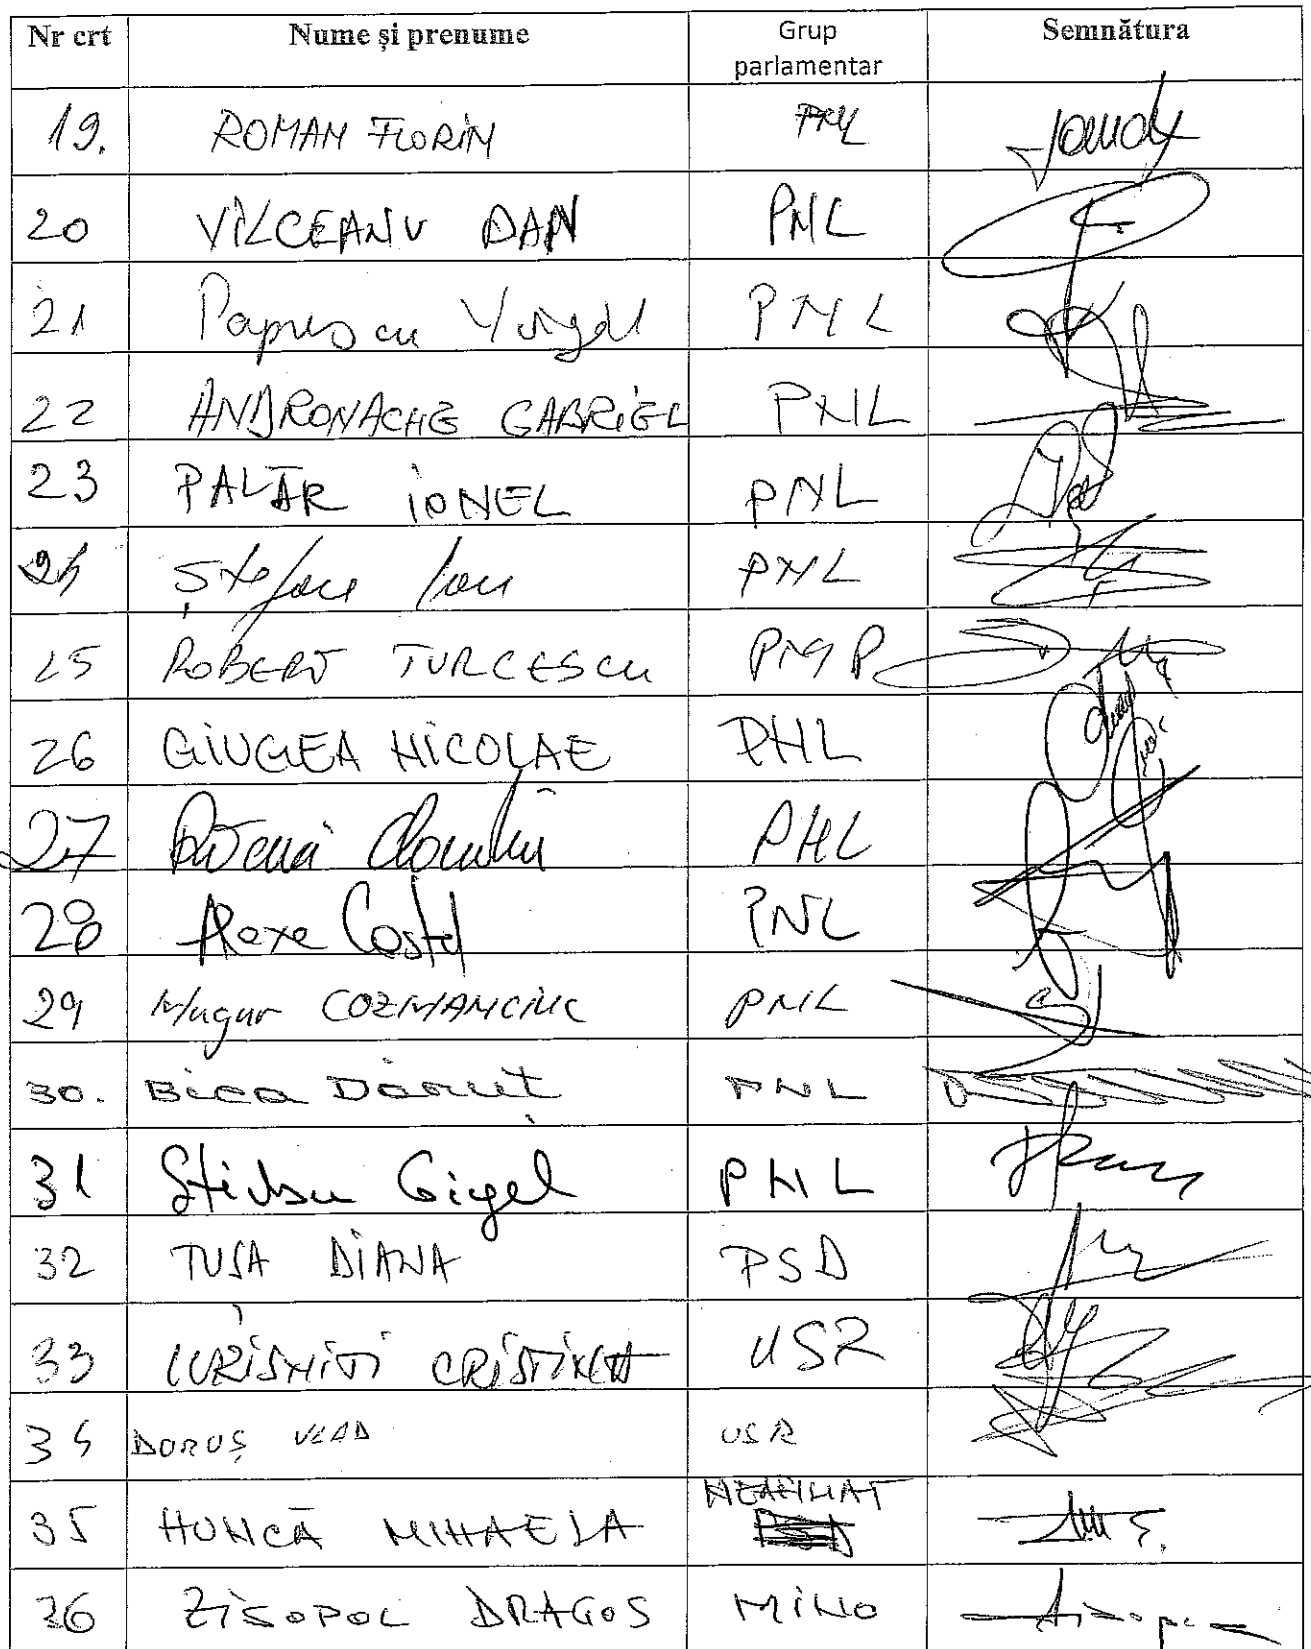 Nr crt Nume și prenume Grup parlamentar Semnătura
19. ROMAN FLORIN PNL
20 VILCEANU DAN PNL
21 Popescu Virgil PNL
22 ANDRONACHE GABRIEL PNL
23 PALĂR IONEL PNL
24 Ștefan Ion PNL
25 ROBERT TURCESCU PMP
26 GIUGEA NICOLAE PNL
27 PNL
28 Alexe Costel PNL
29 Mugur COZMANCIUC PNL
30. Bica Dănuț PNL
31 Știrbu Gigel PNL
32 TUȘA DIANA PSD
33 IURIȘNIȚI CRISTINA USR
34 DORUȘ VLAD USR
35 HUNCĂ MIHAELA NEAFILIAT
36 ZISOPOL DRAGOS MINO